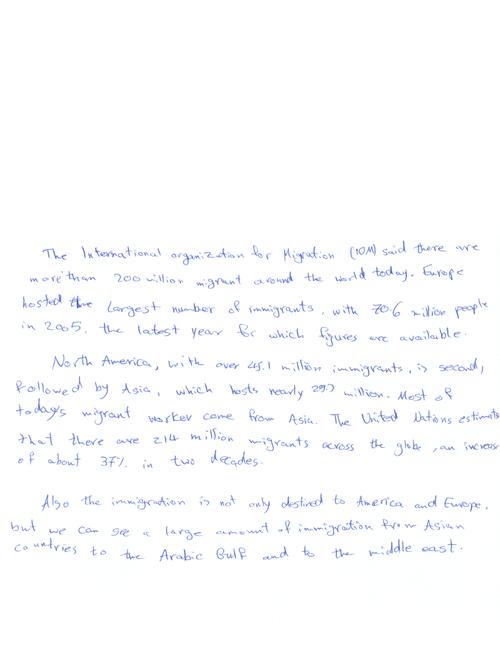 The International organization for Migration (IOM) said there are
more than 200 million migrant around the world today. Europe
hosted the largest number of immigrants, with 70.6 million people
in 2005, the latest year for which figures are available.
North America, with over 45.1 million immigrants, is second,
followed by Asia, which hosts nearly 25.3 million. Most of
today's migrant worker come from Asia. The United Nations estimate
that there are 214 million migrants across the globe, an increase
of about 37% in two decades.
Also the immigration is not only destined to America and Europe,
but we can see a large amount of immigration from Asian
countries to the Arabic Gulf and to the middle east.